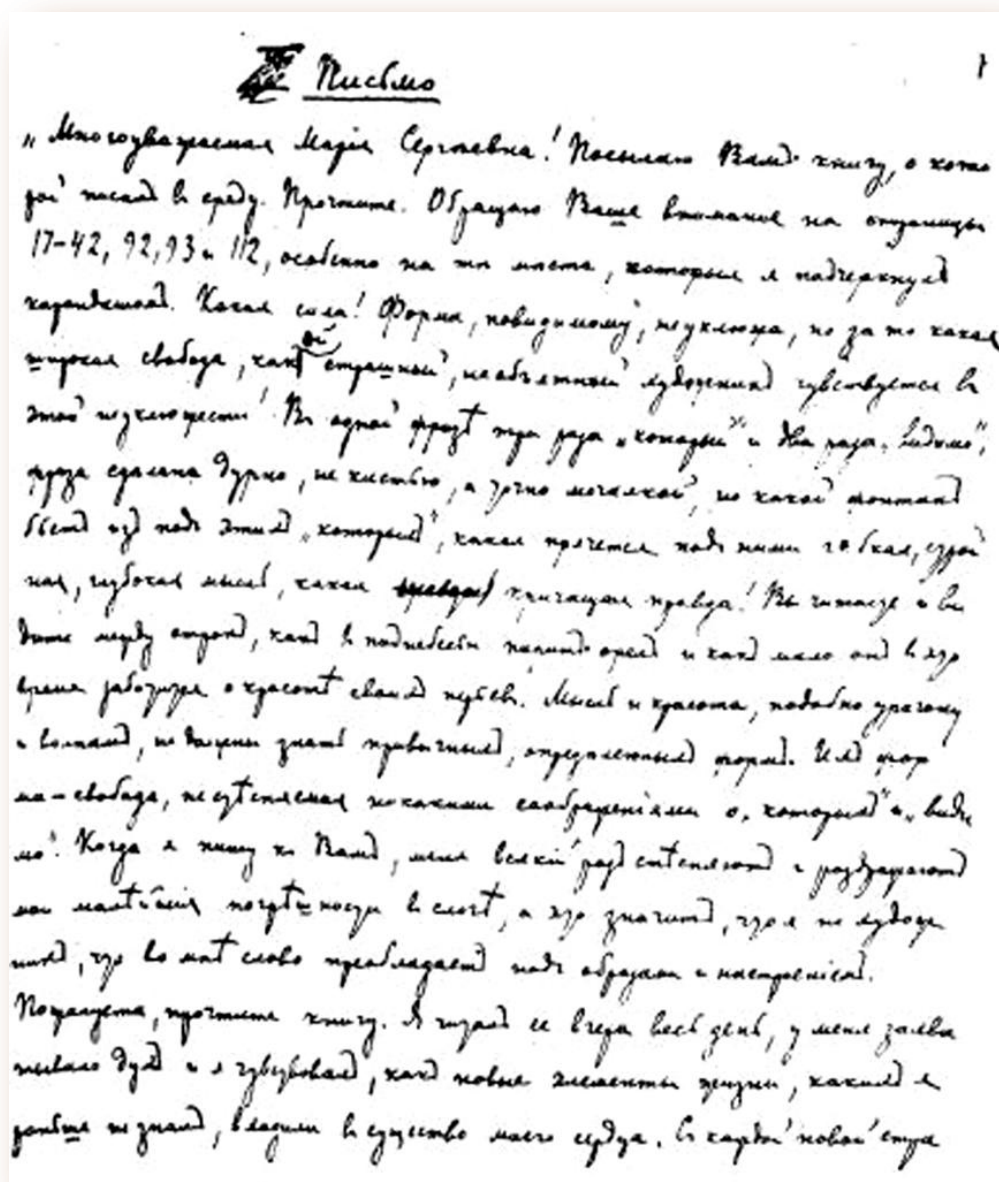 Письмо
1
„Многоуважаемая Марія Сергѣевна! Посылаю Вамъ книгу, о кото
рой писалъ въ среду. Прочтите. Обращаю Ваше вниманіе на страницы
17–42, 92, 93 и 112, особенно на тѣ мѣста, которыя я подчеркнулъ
карандашомъ. Какая сила! Форма, повидимому, неуклюжа, но за то какая
широкая свобода, какой страшный, необъятный художникъ чувствуется въ
этой неуклюжести! Въ одной фразѣ три раза „который" и два раза „видимо",
фраза сдѣлана дурно, не кистью, а точно мочалкой, но какой фонтанъ
бьетъ изъ подъ этихъ „которыхъ", какая прячется подъ ними гибкая, строй
ная, глубокая мысль, какая кричащая правда! Вы читаете и ви
дите между строкъ, какъ въ поднебесьи паритъ орелъ и какъ мало онъ въ это
время заботится о красотѣ своихъ перьевъ. Мысль и красота, подобно урагану
и волнамъ, не должны знать привычныхъ, опредѣленныхъ формъ. Ихъ фор
ма – свобода, не стѣсняемая никакими соображеніями о „которыхъ" и „види
мо". Когда я пишу къ Вамъ, меня всякій разъ стѣсняютъ и раздражаютъ
мои малѣйшія погрѣшности въ слогѣ, а это значитъ, что я не худож
никъ, что во мнѣ слово преобладаетъ надъ образами и настроеніемъ.
Пожалуйста, прочтите книгу. Я читалъ ее вчера весь день, у меня захва
тывало духъ и я чувствовалъ, какъ новые элементы жизни, какихъ я
раньше не зналъ, входили въ существо моего сердца. Съ каждой новой стра